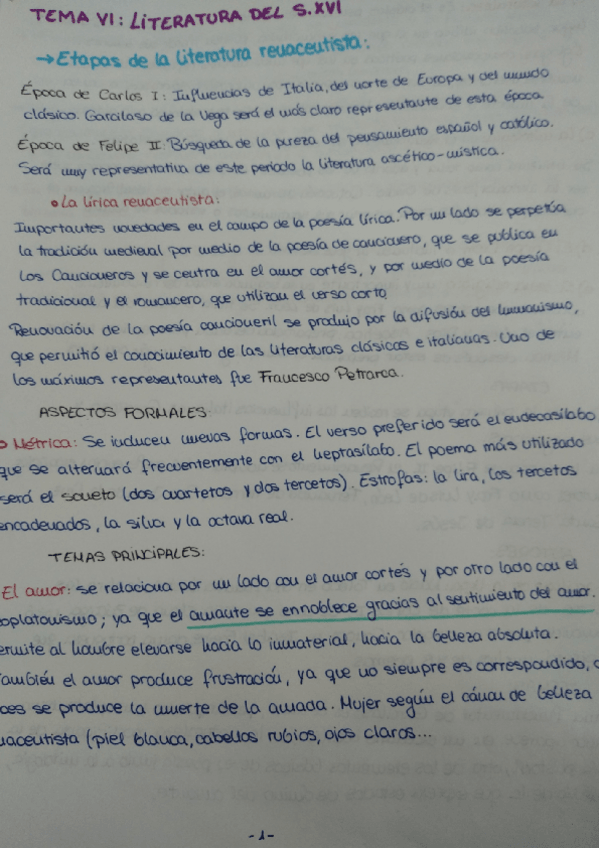 TEMA VI: LITERATURA DEL S.XVI
→Etapas de la Literatura renacentista:
Época de Carlos I: Influencias de Italia, del norte de Europa y del mundo
clásico. Garcilaso de la Vega será el más claro representante de esta época.
Época de Felipe II: Búsqueda de la pureza del pensamiento español y católico.
Será muy representativa de este periodo la literatura ascético-mística.
• La lírica renacentista:
Importantes novedades en el campo de la poesía lírica. Por un lado se perpetúa
la tradición medieval por medio de la poesía de cancionero, que se publica en
Los Cancioneros y se centra en el amor cortés, y por medio de la poesía
tradicional y el romancero, que utilizan el verso corto.
Renovación de la poesía cancioneril se produjo por la difusión del humanismo,
que permitió el conocimiento de las literaturas clásicas e italianas. Uno de
los máximos representantes fue Francesco Petrarca.
ASPECTOS FORMALES:
Métrica: Se inducen nuevas formas. El verso preferido será el endecasílabo
que se alternará frecuentemente con el heptasílabo. El poema más utilizado
será el soneto (dos cuartetos y dos tercetos). Estrofas: la lira, los tercetos
encadenados, la silva y la octava real.
TEMAS PRINCIPALES:
El amor: se relaciona por un lado con el amor cortés y por otro lado con el
oplatonismo; ya que el amante se ennoblece gracias al sentimiento del amor.
ermite al hombre elevarse hacia lo inmaterial, hacia la belleza absoluta.
También el amor produce frustración, ya que no siempre es correspondido, o
ces se produce la muerte de la amada. Mujer según el cánon de belleza
nacentista (piel blanca, cabellos rubios, ojos claros...
-1-